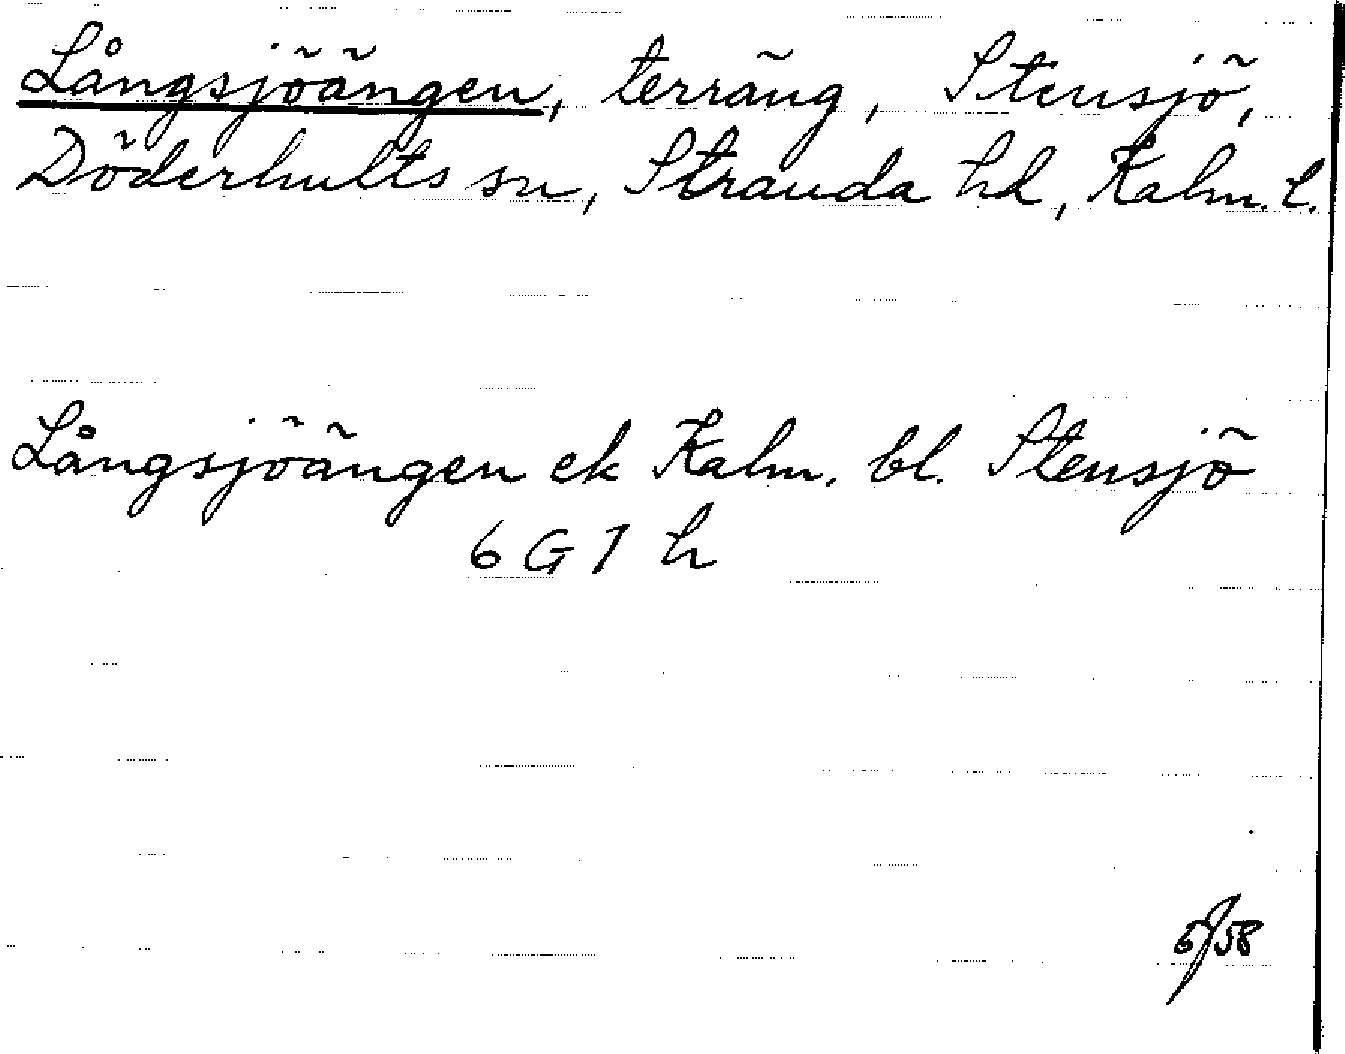 Långsjöängen, terräng, Stensjö,
Döderhults sn, Stranda hd, Kalm. l.
Långsjöängen ek Kalm. bl. Stensjö
6 G 7 h